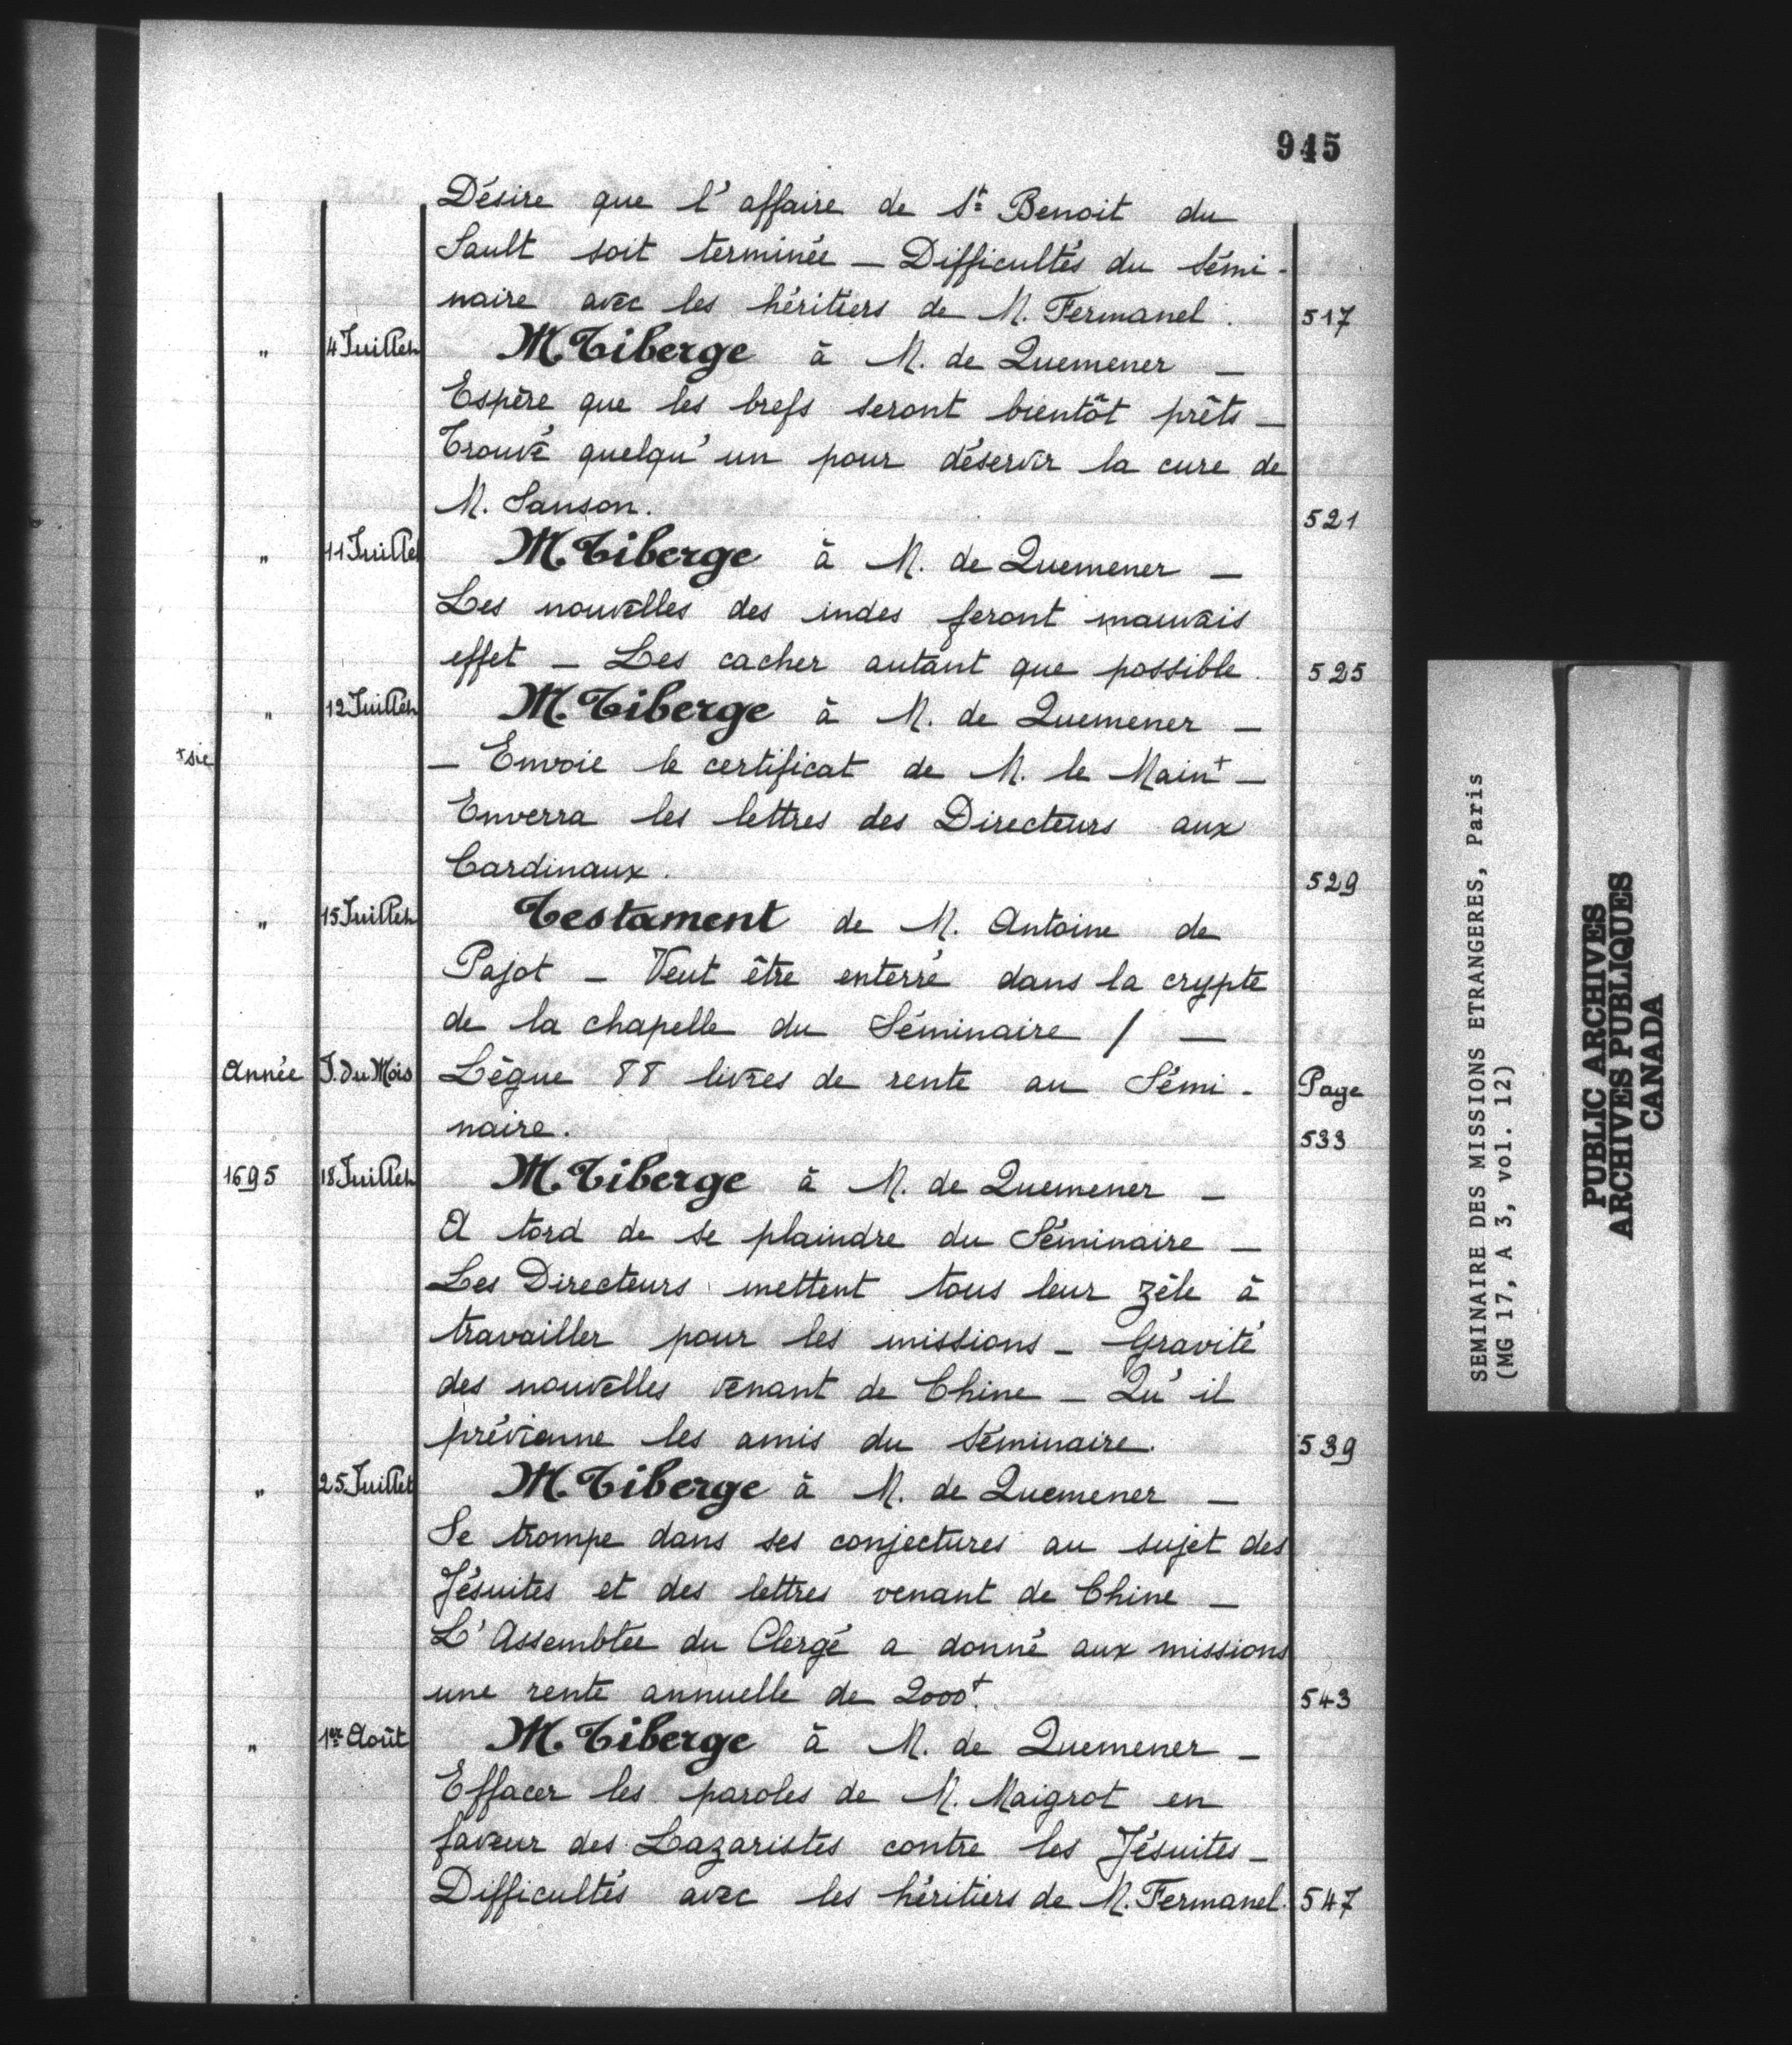 945
Désire que l'affaire de St Benoit du
Sault soit terminée — Difficultés du Sémi-
naire avec les héritiers de M. Fermanel. 517
" 4 Juillet M. Tiberge à M. de Quemener —
Espère que les brefs seront bientôt prêts —
Trouvé quelqu'un pour déservir la cure de
M. Sanson. 521
" 11 Juillet M. Tiberge à M. de Quemener —
Les nouvelles des indes feront mauvais
effet — Les cacher autant que possible. 525
" 12 Juillet M. Tiberge à M. de Quemener —
+sic — Envoie le certificat de M. le Main+ —
Enverra les lettres des Directeurs aux
Cardinaux. 529
" 15 Juillet Testament de M. Antoine de
Pajot — Veut être enterré dans la crypte
de la chapelle du Séminaire / —
Année J. du Mois Lègue 88 livres de rente au Sémi- Page
naire. 533
1695 18 Juillet M. Tiberge à M. de Quemener —
A tord de se plaindre du Séminaire —
Les Directeurs mettent tous leur zèle à
travailler pour les missions — Gravité
des nouvelles venant de Chine — Qu'il
prévienne les amis du Séminaire. 539
" 25 Juillet M. Tiberge à M. de Quemener —
Se trompe dans ses conjectures au sujet des
Jésuites et des lettres venant de Chine —
L'Assemblée du Clergé a donné aux missions
une rente annuelle de 2000+. 543
" 1er Août M. Tiberge à M. de Quemener —
Effacer les paroles de M. Maigrot en
faveur des Lazaristes contre les Jésuites —
Difficultés avec les héritiers de M. Fermanel. 547
SEMINAIRE DES MISSIONS ETRANGERES, Paris
(MG 17, A 3, vol. 12)
PUBLIC ARCHIVES
ARCHIVES PUBLIQUES
CANADA